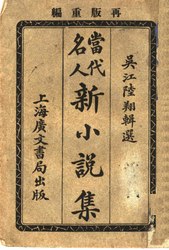 再版重編
吳江陸翔輯選
當代名人
新小說集
上海廣文書局出版